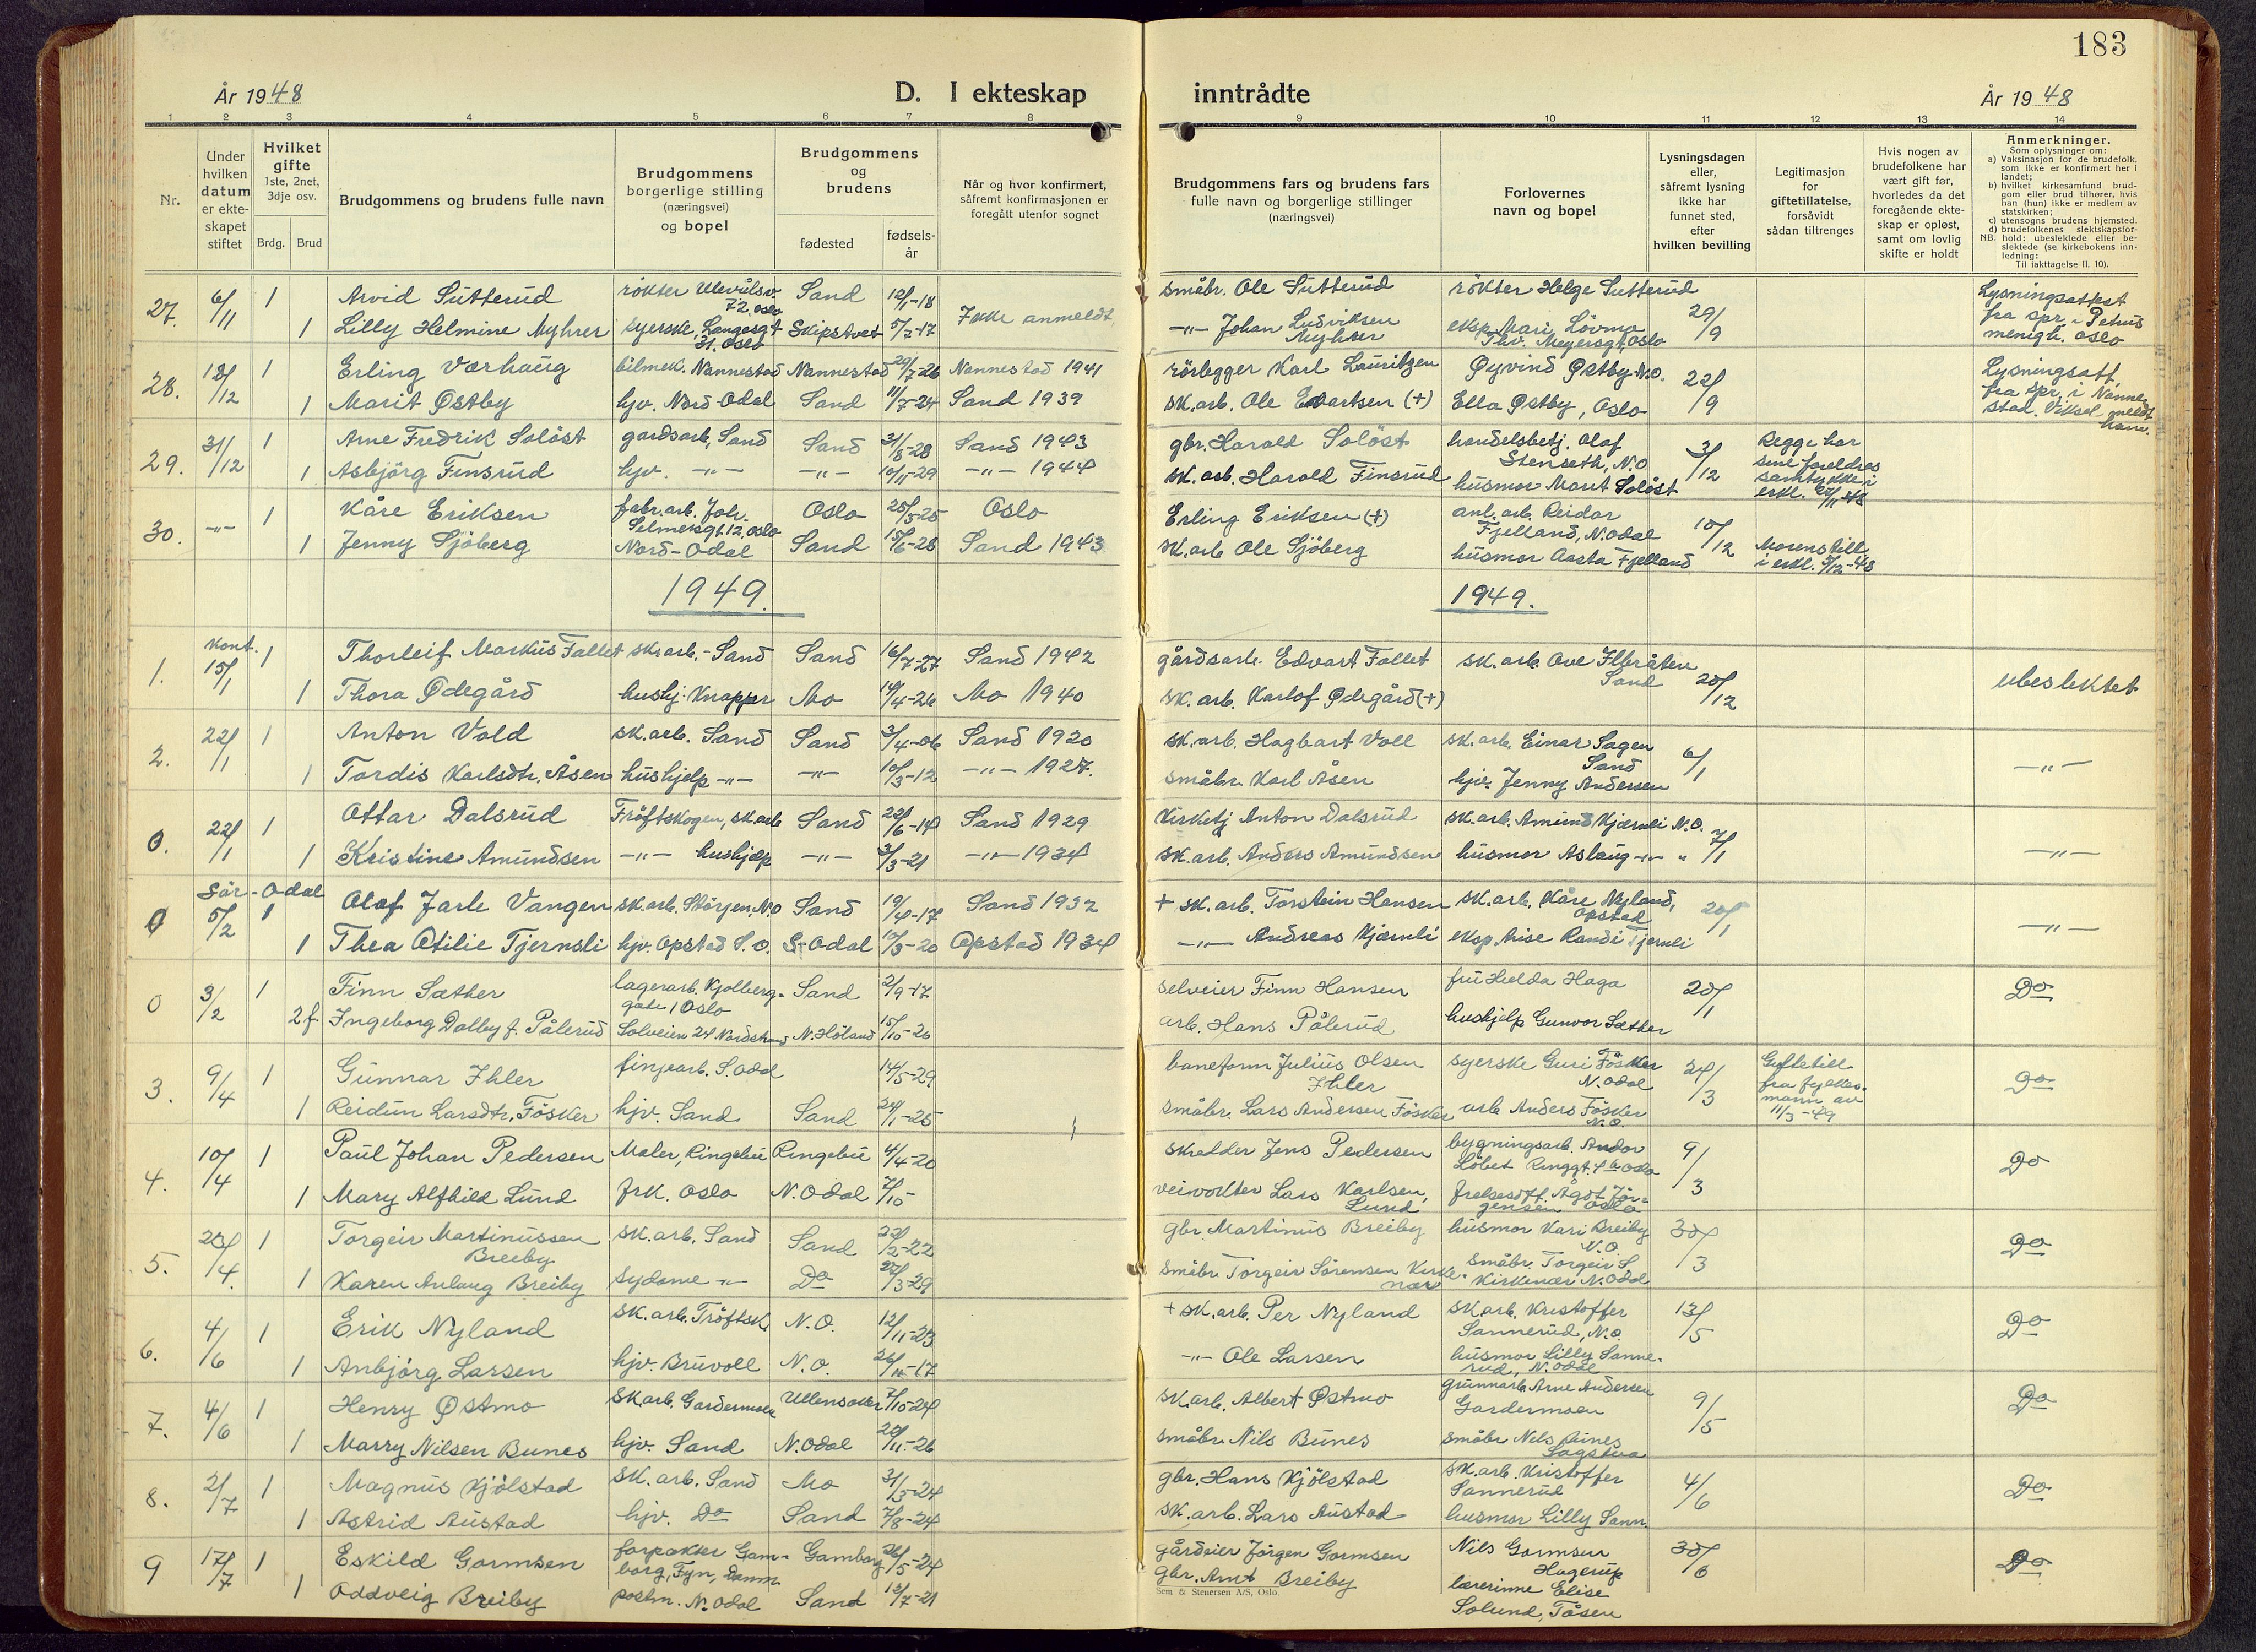 183
År 1948
D. I ekteskap inntrådte
År 1948
1 2 3 4 5 6 7 8 9 10 11 12 13 14
Nr.
Under
hvilken
datum
er ekte-
skapet
stiftet
Hvilket
gifte
1ste, 2net,
3dje osv.
Brdg. Brud
Brudgommens og brudens fulle navn
Brudgommens
borgerlige stilling
(næringsvei)
og bopel
Brudgommens
og
brudens
fødested
fødsels-
år
Når og hvor konfirmert,
såfremt konfirmasjonen er
foregått utenfor sognet
Brudgommens fars og brudens fars
fulle navn og borgerlige stillinger
(næringsvei)
Forlovernes
navn og bopel
Lysningsdagen
eller,
såfremt lysning
ikke har
funnet sted,
efter
hvilken bevilling
Legitimasjon
for
giftetillatelse,
forsåvidt
sådan tiltrenges
Hvis nogen av
brudefolkene har
vært gift før,
hvorledes da det
foregående ekte-
skap er opløst,
samt om lovlig
skifte er holdt
Anmerkninger.
Som oplysninger om:
a) Vaksinasjon for de brudefolk,
som ikke er konfirmert her i
landet;
b) hvilket kirkesamfund brud-
gom eller brud tilhører, hvis
han (hun) ikke er medlem av
statskirken;
c) utensogns brudens hjemsted.
d) brudefolkenes slektskapsfor-
hold: ubeslektede eller be-
slektede (se kirkebokens inn-
ledning:
Til iakttagelse II. 10).
27. 6/11 1 Arvid Sutterud røkter Ulevålsv. 72, oslo Sand 12/1-18 Ikke anmeldt. småbr. Ole Sutterud røkter Helge Sutterud 29/9 Lysningsattest
fra spr. i Petrus
menigh. oslo
1 Lilly Helmine Myhrer syerske, Langesgt 31. oslo Skipstvet 5/7-17 -"- Johan Ludviksen Myhrer eksp. Mari Lövmo Thv. Meyersgt, oslo
28. 18/12 1 Erling Værhaug bilmek. Nannestad Nannestad 29/7-26 Nannestad 1941 rörlegger Karl Lauritzen Øyvind Østby N.O. 22/9 Lysningsatt.
fra spr. i Nanne-
stad. Viksel. meldt
1 Marit Østby hjv. Nord Odal Sand 11/7-24 Sand 1939 sk.arb. Ole Evartsen (+) Ella Østby, Oslo
29. 31/12 1 Arne Fredrik Solöst gardsarb, Sand Sand 31/8-28 Sand 1943 gbr. Harald Solöst handelsbetj. Olaf Stenseth, N.O 3/12 Begge har
sine foreldres
samtykke i
erkl.
1 Asbjörg Finsrud hjv. -"- -"- 10/11-29 -"- 1944 sk. arb. Harald Finsrud husmor Marit Solöst
30. -"- 1 Kåre Eriksen fabr.arb. Joh. Selmersgt 12, oslo Oslo 25/5-25 Oslo Erling Eriksen (+) anl. arb. Reidar Fjelland, N.odal 10/12
1 Jenny Sjöberg Nord-Odal Sand 15/6-28 Sand 1943 sk.arb Ole Sjöberg husmor Aasta Fjelland Morens till.
i erkl. 5/12-48
1949. 1949.
1. Kont. 15/1 1 Thorleif Markus Fallet sk.arb. - Sand Sand 16/7-27 Sand 1942 gårdsarb. Edvart Fallet sk. arb. Ove Ilbråten Sand 20/12 ubeslektet
1 Thora Ødegård hushj. Knapper Mo 14/4-26 Mo 1940 sk. arb. Karlof Ødegård (+)
2. 22/1 1 Anton Vold sk.arb. Sand Sand 3/4-06 Sand 1920 sk. arb. Hagbart Voll sk. arb. Einar Sagen Sand 6/1 -"-
1 Tordis Karlsdtr. Åsen hushjelp -"- -"- 10/3-12 -"- 1927. småbr. Karl Åsen hjv. Jenny Andersen
0. 22/1 1 Ottar Dalsrud Tröftskogen, sk.arb Sand 22/6-14 Sand 1929 Kirketj Anton Dalsrud sk. arb. Amund Kjærnli N.O. 7/1 -"-
1 Kristine Amundsen -"- hushjelp -"- 3/3-21 -"- 1934 sk. arb. Anders Amundsen husmor Aslaug -"- "
0 Sör-Odal 5/2 1 Olaf Jarle Vangen sk.arb. Störjen, N.O Sand 19/4-17 Sand 1932 + sk. arb. Torstein Hansen sk. arb. Kåre Nyland, Opstad 20/1 -"-
1 Thea Otilie Tjernsli hjv. Opstad S.O. S-Odal 12/3-20 Opstad 1934 -"- Andreas Kjærnli eksp. Randi Tjernli
0 3/2 1 Finn Sæther lagerarb. Kjølberg- gate 1 Oslo Sand 2/9-17 selveier Finn Hansen fru Hulda Haga 20/1 Do
2 f. Ingeborg Dalby f. Pålerud Solveien 24 Nordstrand N. Höland 15/10-20 arb. Hans Pålerud hushjelp Gunvor Sæther
3. 9/4 1 Gunnar Ihler linjearb. S. Odal 14/5-29 baneform Julius Olsen Ihler syerske Guri Fösker N. Odal 24/3 Giftetill
fra fylkes-
mann av
11/3-49 Do
1 Reidun Larsdtr. Fösker hjv. Sand Sand 24/1-25 småbr. Lars Andersen Fösker arb. Anders Fösker N.O.
4. 10/4 1 Paul Johan Pedersen Maler, Ringebu Ringebu 4/4-20 skredder Jens Pedersen bygningsarb. Andor Löbet Ringgt. oslo 9/3 Do
1 Mary Alfhild Lund frk. Oslo N. Odal veivokter Lars Karlsen, Lund frelsesoff. Ågot Jör- gensen Oslo
5. 20/4. 1 Torgeir Martinussen Breiby sk. arb. Sand Sand 22/2-22 gbr Martinus Breiby husmor Kari Breiby N.O. 30/3 Do
1 Karen Anlaug Breiby sydame -"- Do 27/3-29 småbr Torgeir Sörensen Kirke- nær småbr. Torgeir S. Kirkenær N. Odal
6. 4/6 1 Erik Nyland sk. arb. Tröftsk. N.O. 12/11-23 + sk. arb. Per Nyland skarb. Kristoffer Sannerud, N.O. 13/5 Do
1 Anbjörg Larsen hjv. Bruvoll N.O. 26/10-17 -"- Ole Larsen husmor Lilly Sanne- rud, N. Odal
7. 4/6 1 Henry Østmo skarb. Gardermoen Ullensaker 7/10-24 sk.arb. Albert Østmo grunnarb. Arne Andersen Gardermoen 9/5 Do
1 Marry Nilsen Bunes hjv. Sand N. Odal 20/11-26 småbr. Nils Bunes småbr Nils Bunes Sagstua
8. 2/7 1 Magnus Kjölstad sk. arb. Sand Mo 31/5-24 gbr. Hans Kjölstad sk.arb. Kristoffer Sannerud 4/6 Do
1 Astrid Austad hjv. Do Sand 7/8-24 sk. arb. Lars Austad husmor Lilly Sann.
9 17/7 1 Eskild Gormsen forpakter Gam- borg, Fyn, Danm Gamborg 26/5-24 gårdeier Jörgen Gormsen Nils Gormsen Hagerup 30/6 Do
1 Oddveig Breiby postm. N. Odal Sand 12/7-21 gbr. Arnt Breiby lærerinne Elise Solund, Tåsen
Sem & Stenersen A/S, Oslo.